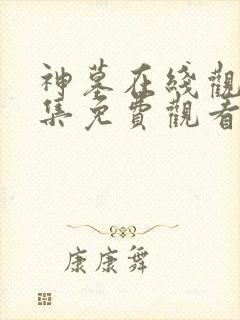 神墓在綫觀
集免費觀看
康康舞